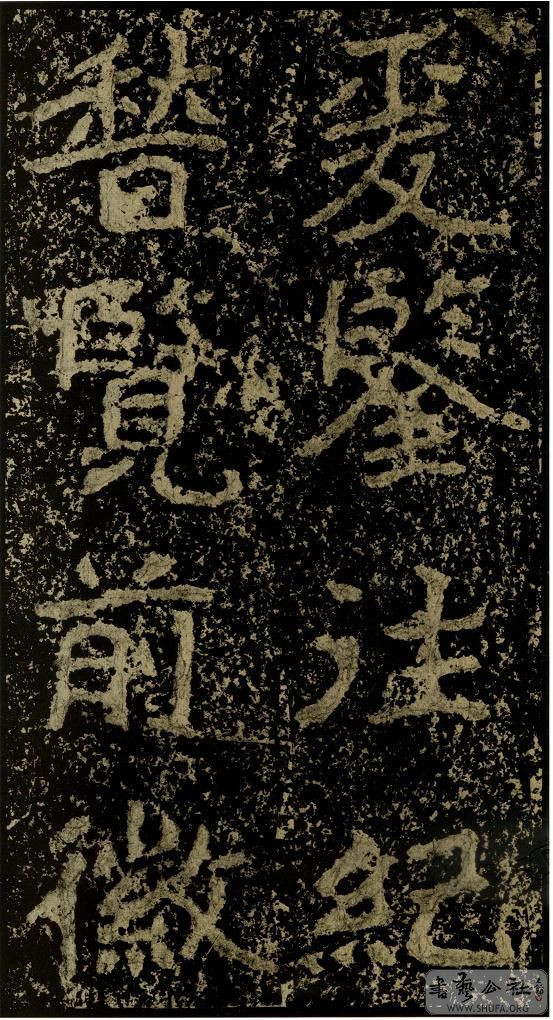 爰鑒往紀
稽覽前徽
書藝公社
WWW.SHUFA.ORG